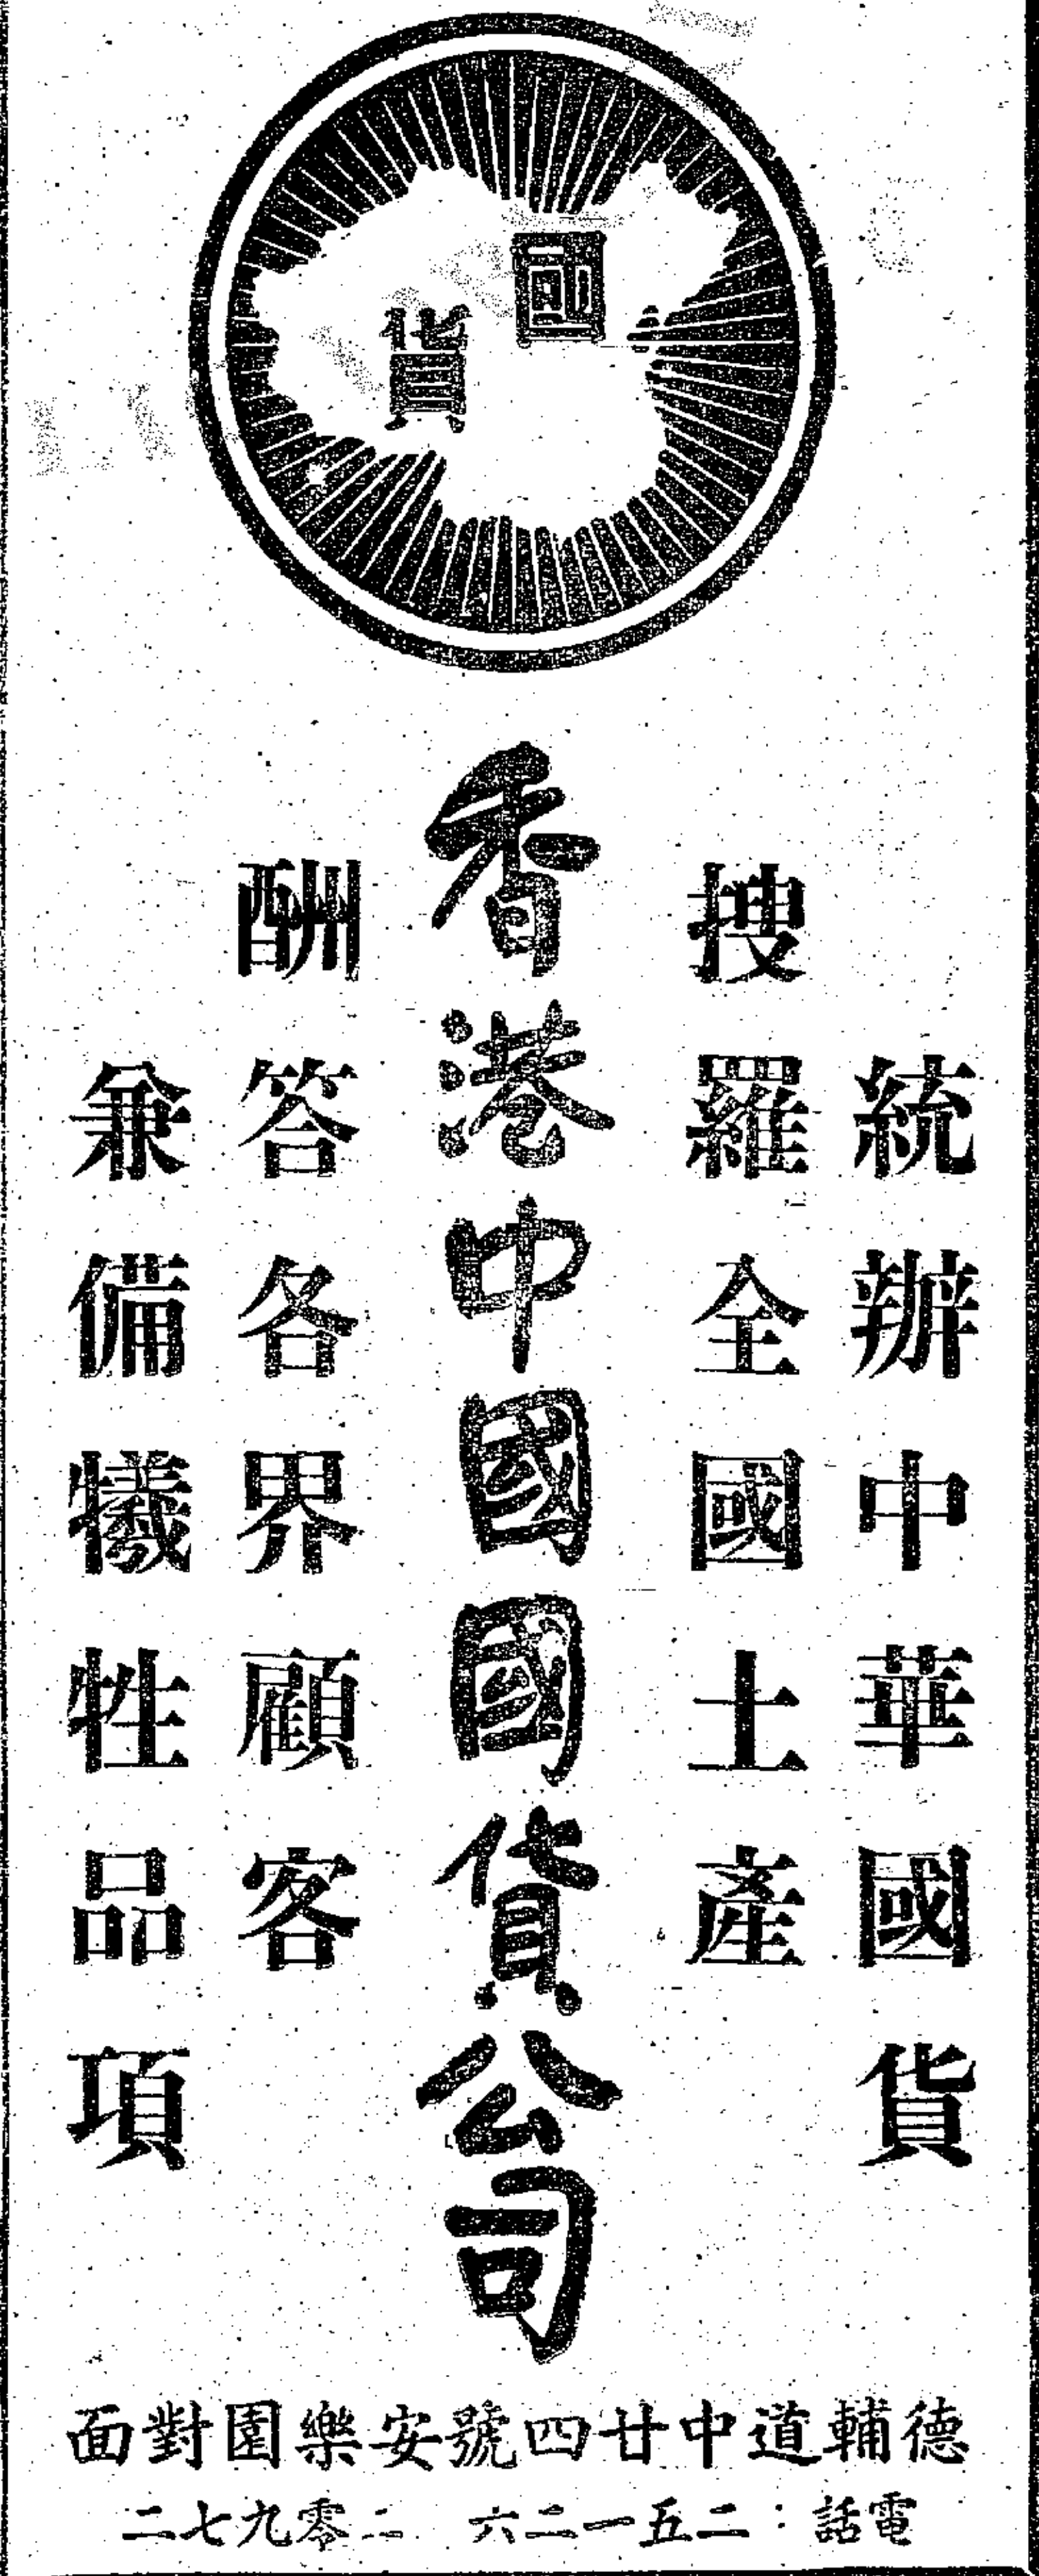 國貨
統辦中華國貨
搜羅全國土產
香港中國國貨公司
酬答各界顧客
兼備犧牲品項
德輔道中廿四號安樂園對面
電話：二五一二六　二零九七二